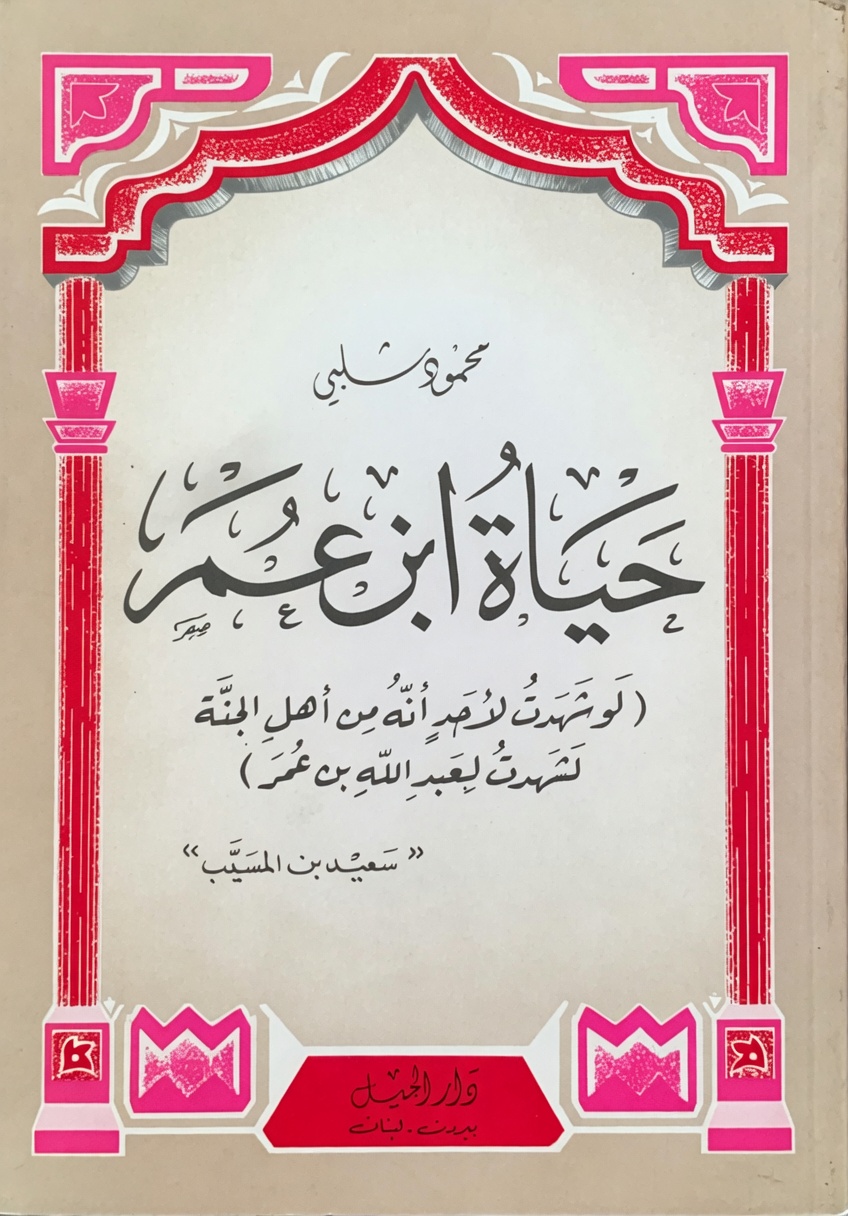 محمود شلبي
حَيَاةُ ابن عُمَر
(لَو شَهَدتُ لأحَدٍ أنّهُ مِن أهلِ الجنَّة
لَشَهدتُ لِعَبدِ اللّهِ بن عُمَرَ)
"سَعيْد بن المسَيَّب"
دَار الجيل
بيروت - لبنان